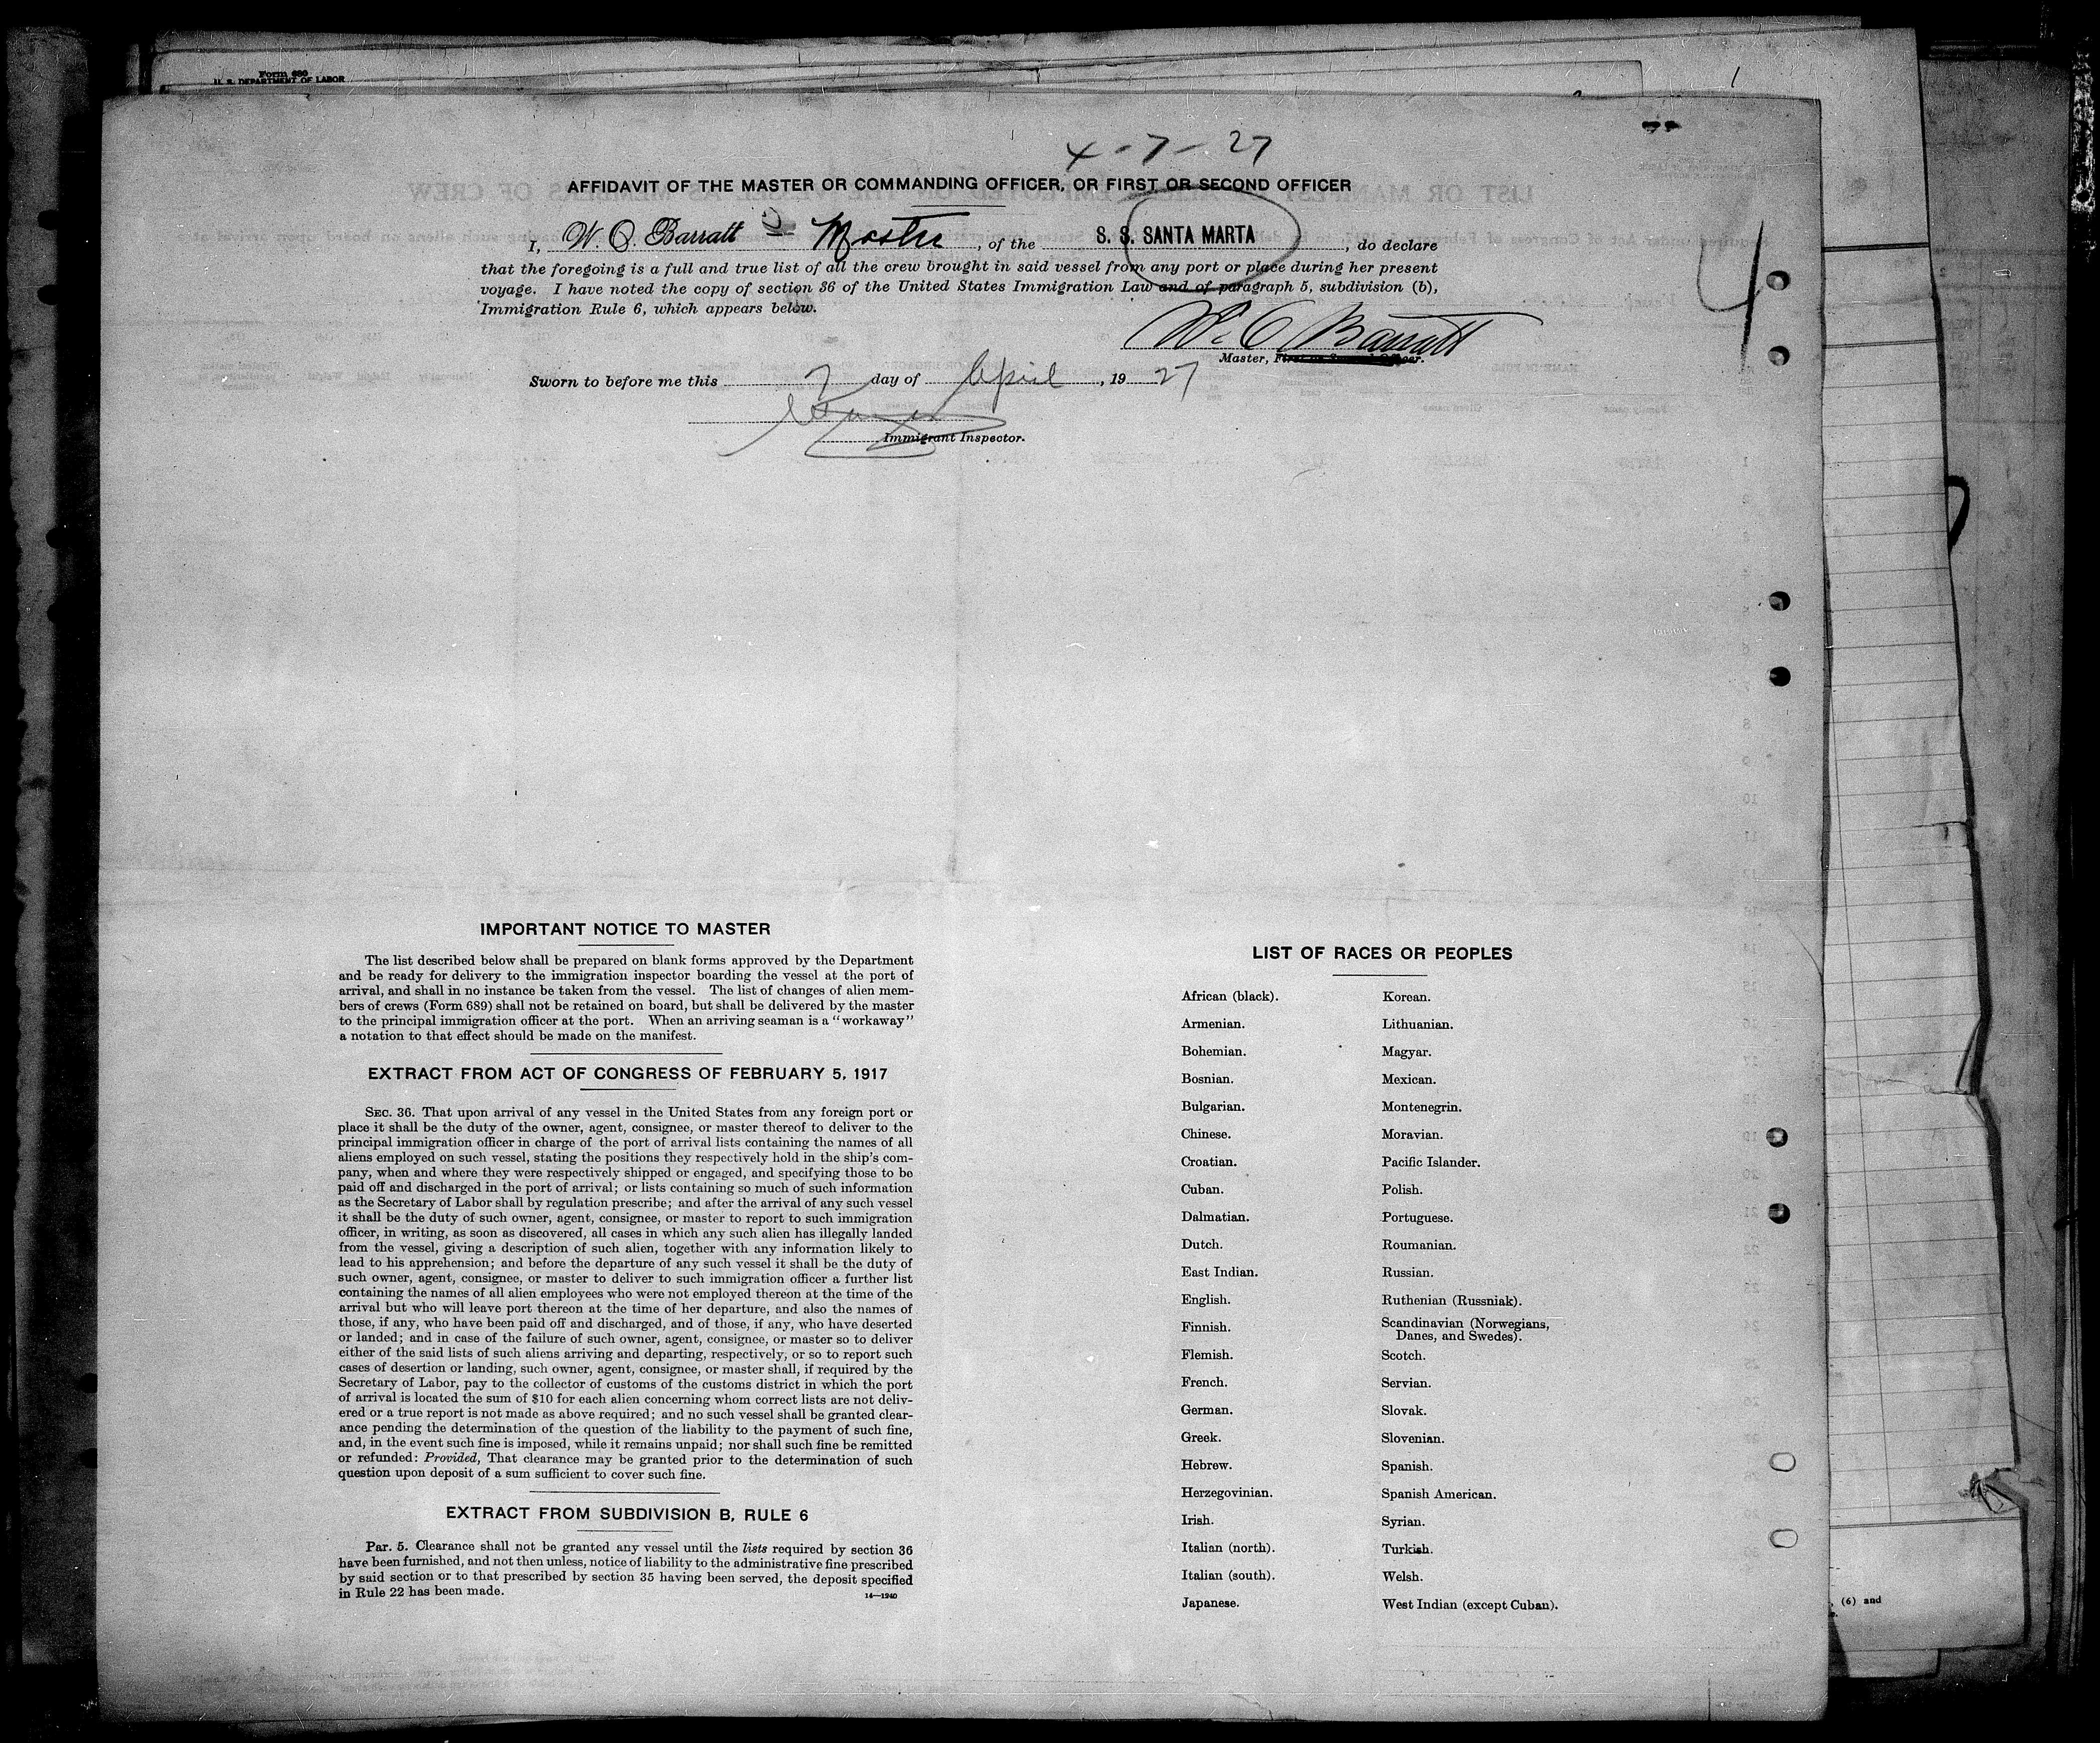 Form 680
U. S. DEPARTMENT OF LABOR
4-7-27
AFFIDAVIT OF THE MASTER OR COMMANDING OFFICER, OR FIRST OR SECOND OFFICER
I, W. C. Barratt Master, of the S. S. SANTA MARTA, do declare
that the foregoing is a full and true list of all the crew brought in said vessel from any port or place during her present
voyage. I have noted the copy of section 36 of the United States Immigration Law and of paragraph 5, subdivision (b),
Immigration Rule 6, which appears below.
W. C. Barratt
Master, First or Second Officer.
Sworn to before me this 7 day of April, 1927
Immigrant Inspector.
4
IMPORTANT NOTICE TO MASTER
The list described below shall be prepared on blank forms approved by the Department
and be ready for delivery to the immigration inspector boarding the vessel at the port of
arrival, and shall in no instance be taken from the vessel. The list of changes of alien mem-
bers of crews (Form 689) shall not be retained on board, but shall be delivered by the master
to the principal immigration officer at the port. When an arriving seaman is a "workaway"
a notation to that effect should be made on the manifest.
EXTRACT FROM ACT OF CONGRESS OF FEBRUARY 5, 1917
SEC. 36. That upon arrival of any vessel in the United States from any foreign port or
place it shall be the duty of the owner, agent, consignee, or master thereof to deliver to the
principal immigration officer in charge of the port of arrival lists containing the names of all
aliens employed on such vessel, stating the positions they respectively hold in the ship's com-
pany, when and where they were respectively shipped or engaged, and specifying those to be
paid off and discharged in the port of arrival; or lists containing so much of such information
as the Secretary of Labor shall by regulation prescribe; and after the arrival of any such vessel
it shall be the duty of such owner, agent, consignee, or master to report to such immigration
officer, in writing, as soon as discovered, all cases in which any such alien has illegally landed
from the vessel, giving a description of such alien, together with any information likely to
lead to his apprehension; and before the departure of any such vessel it shall be the duty of
such owner, agent, consignee, or master to deliver to such immigration officer a further list
containing the names of all alien employees who were not employed thereon at the time of the
arrival but who will leave port thereon at the time of her departure, and also the names of
those, if any, who have been paid off and discharged, and of those, if any, who have deserted
or landed; and in case of the failure of such owner, agent, consignee, or master so to deliver
either of the said lists of such aliens arriving and departing, respectively, or so to report such
cases of desertion or landing, such owner, agent, consignee, or master shall, if required by the
Secretary of Labor, pay to the collector of customs of the customs district in which the port
of arrival is located the sum of $10 for each alien concerning whom correct lists are not deliv-
ered or a true report is not made as above required; and no such vessel shall be granted clear-
ance pending the determination of the question of the liability to the payment of such fine,
and, in the event such fine is imposed, while it remains unpaid; nor shall such fine be remitted
or refunded: Provided, That clearance may be granted prior to the determination of such
question upon deposit of a sum sufficient to cover such fine.
EXTRACT FROM SUBDIVISION B, RULE 6
Par. 5. Clearance shall not be granted any vessel until the lists required by section 36
have been furnished, and not then unless, notice of liability to the administrative fine prescribed
by said section or to that prescribed by section 35 having been served, the deposit specified
in Rule 22 has been made.
14—1240
LIST OF RACES OR PEOPLES
African (black).
Armenian.
Bohemian.
Bosnian.
Bulgarian.
Chinese.
Croatian.
Cuban.
Dalmatian.
Dutch.
East Indian.
English.
Finnish.
Flemish.
French.
German.
Greek.
Hebrew.
Herzegovinian.
Irish.
Italian (north).
Italian (south).
Japanese.
Korean.
Lithuanian.
Magyar.
Mexican.
Montenegrin.
Moravian.
Pacific Islander.
Polish.
Portuguese.
Roumanian.
Russian.
Ruthenian (Russniak).
Scandinavian (Norwegians,
Danes, and Swedes).
Scotch.
Servian.
Slovak.
Slovenian.
Spanish.
Spanish American.
Syrian.
Turkish.
Welsh.
West Indian (except Cuban).
(6) and